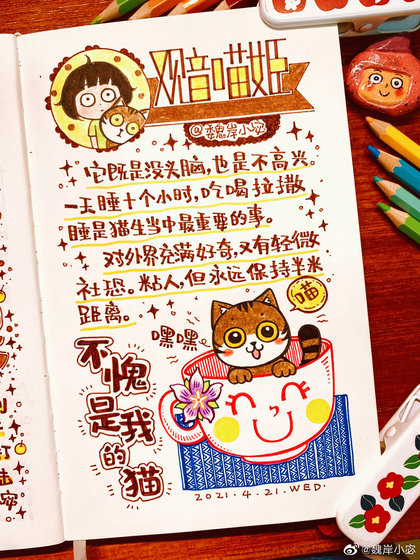 观音喵姬
@魏岸小宓
它既是没头脑,也是不高兴。
一天睡十个小时,吃喝拉撒
睡是猫生当中最重要的事。
对外界充满好奇,又有轻微
社恐。粘人,但永远保持半米
距离。
喵
嘿嘿
不愧是我的猫
2021.4.21.WED.
@魏岸小宓